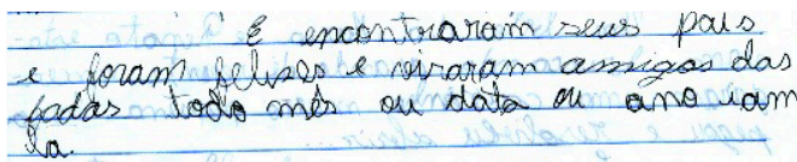 E encontraram seus pais
e foram felises e viraram amigos das
fadas todo mês ou data ou ano iam
la.